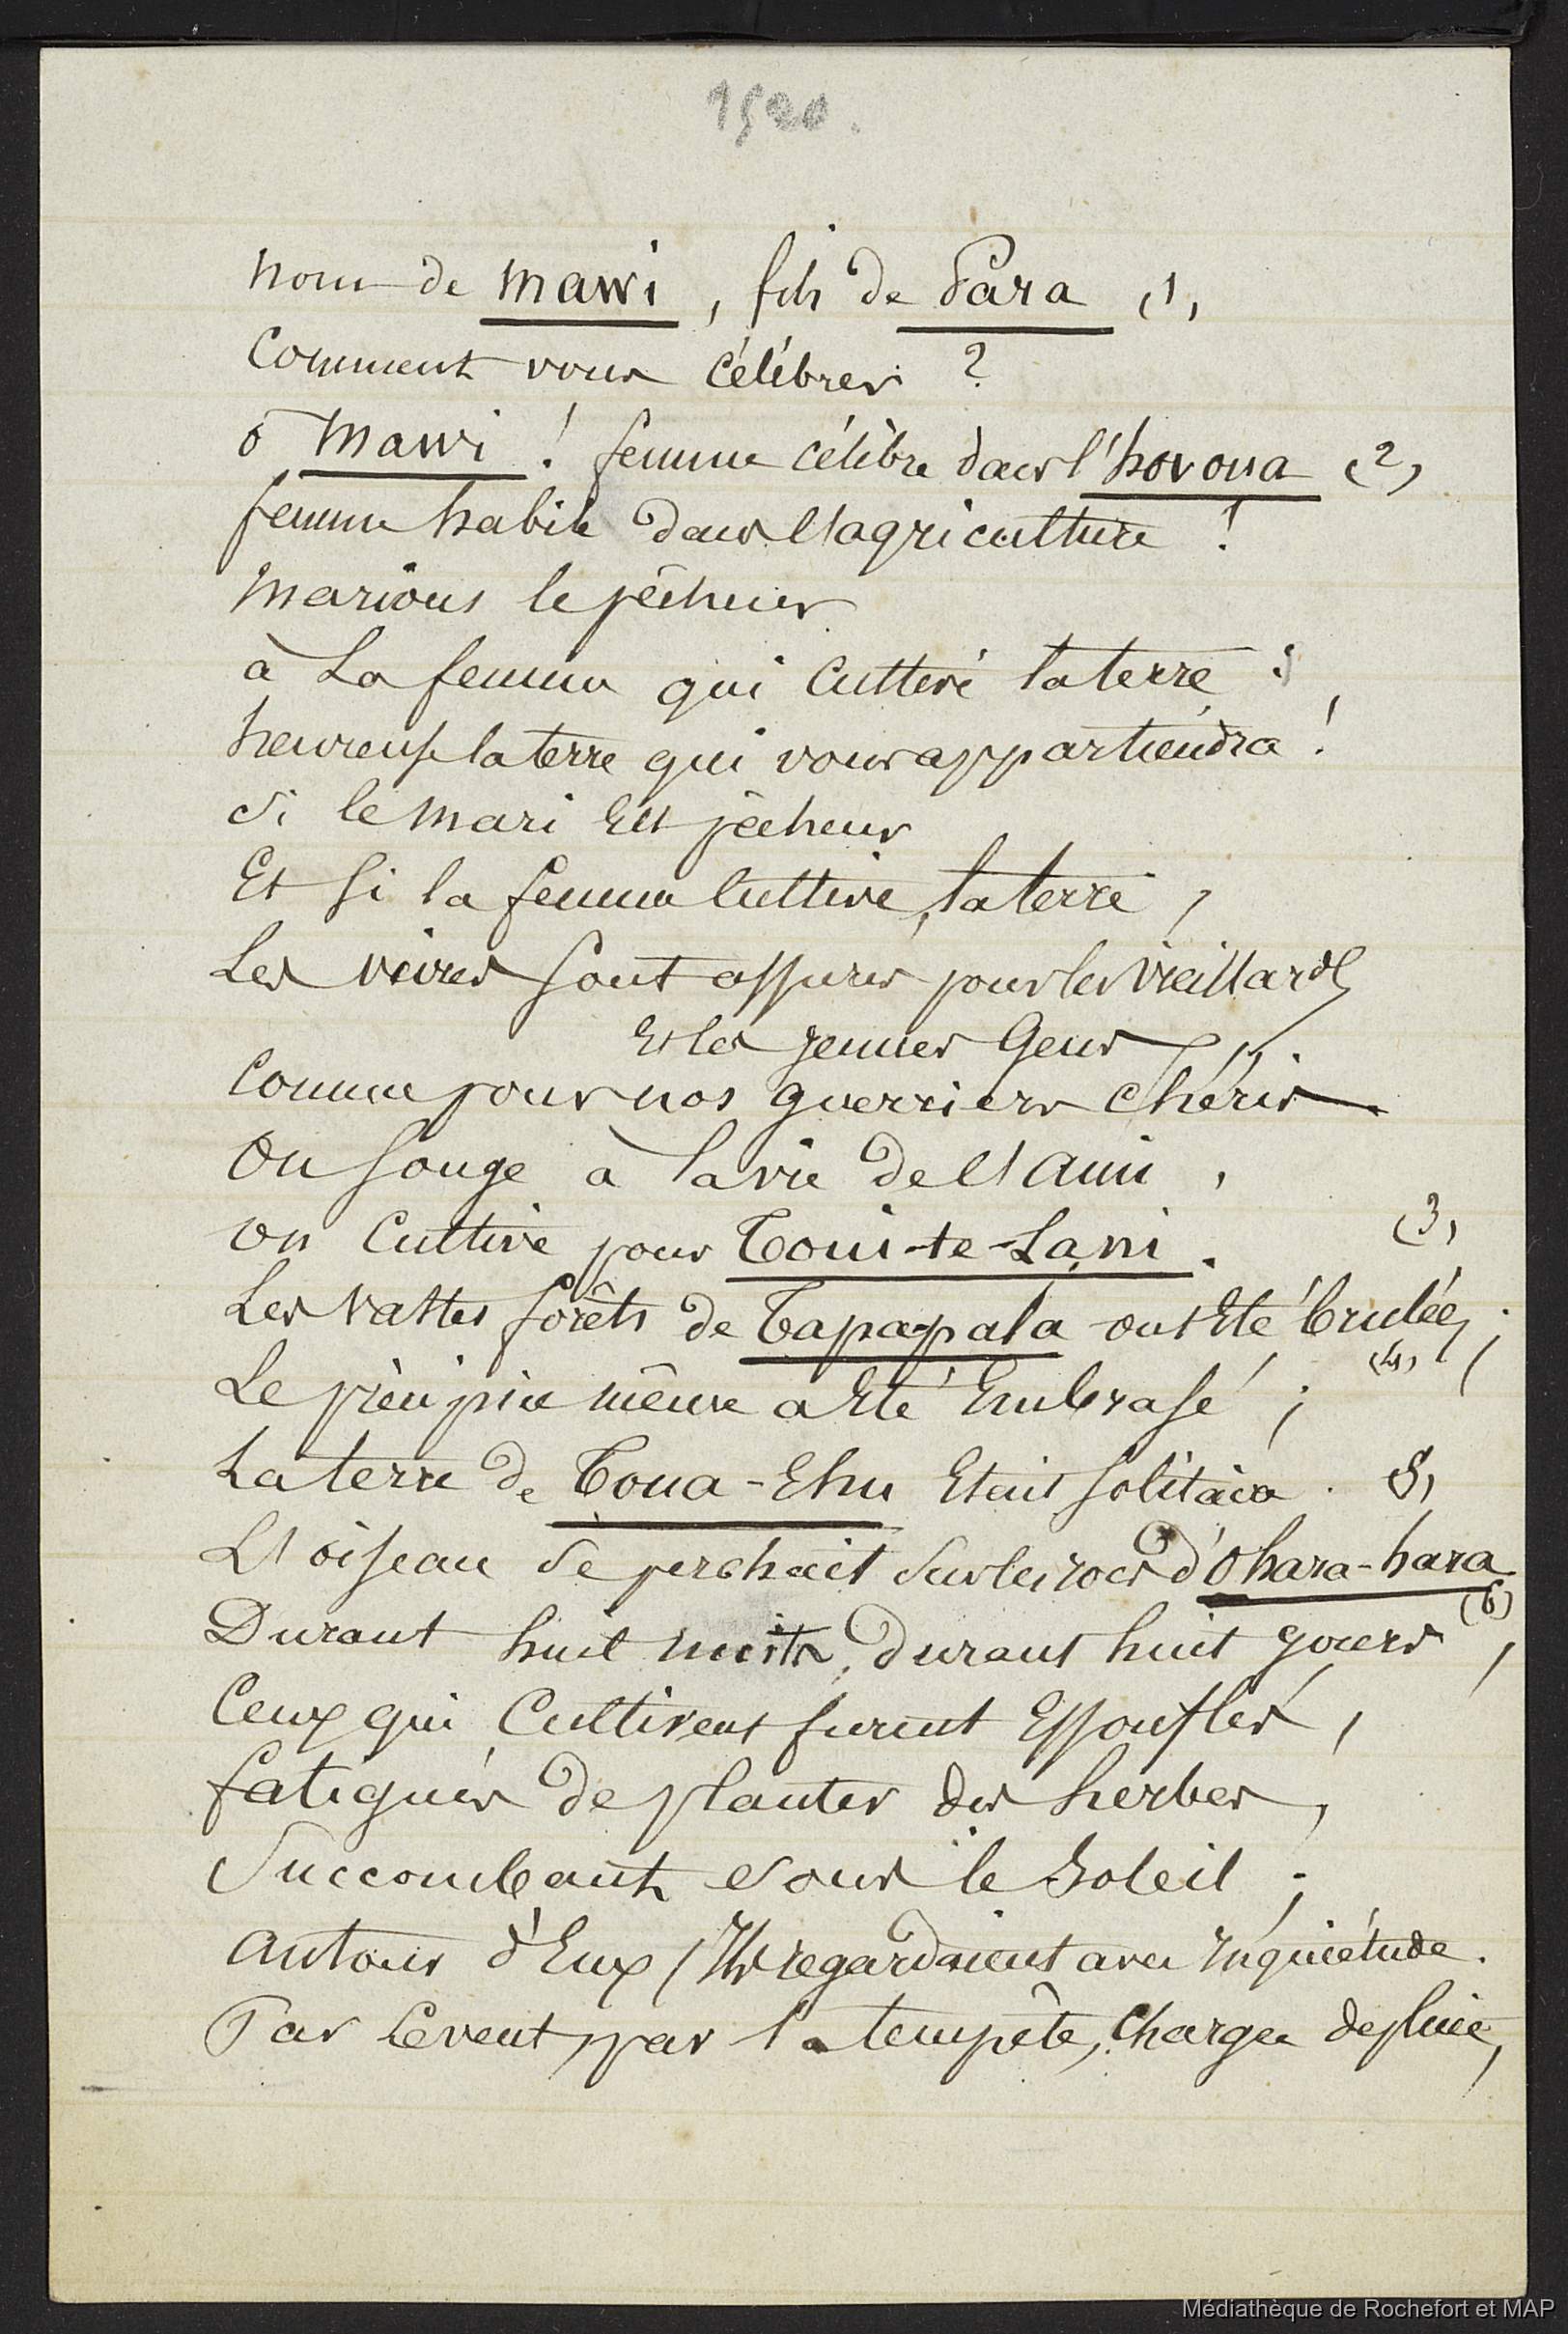 1520.
nom de mawi, fils de Para (1)
Comment vous célébrer ?
ô mawi ! femme célèbre dans l'hovoua (2)
femme habile dans l'agriculture !
marions le pêcheur
à la femme qui cultive la terre :
heureuse la terre qui vous appartiendra !
Si le mari Est pêcheur
Et si la femme cultive la terre,
Les vivres sont assurés pour les vieillards
Et les jeunes Gens,
Comme pour nos guerriers chéris
On songe à la vie de l'ami,
on Cultive pour Toui-te-Lani. (3)
Les vastes forêts de Tapa-pala ont Eté brulées;
(4)
Le précipice même a Eté Embrasé;
La terre de Toua-Ehu Etait solitaire. (5)
L'oiseau se perchait sur les rocs d'Ohara-hara
(6)
Durant huit nuits, durant huit jours,
Ceux qui Cultivent furent Essouflés,
fatigués de planter des herbes,
Succombant sous le Soleil;
autour d'Eux, Ils regardaient avec Inquiétude.
Par le vent, par la tempête, Chargée de pluie,
Médiathèque de Rochefort et MAP